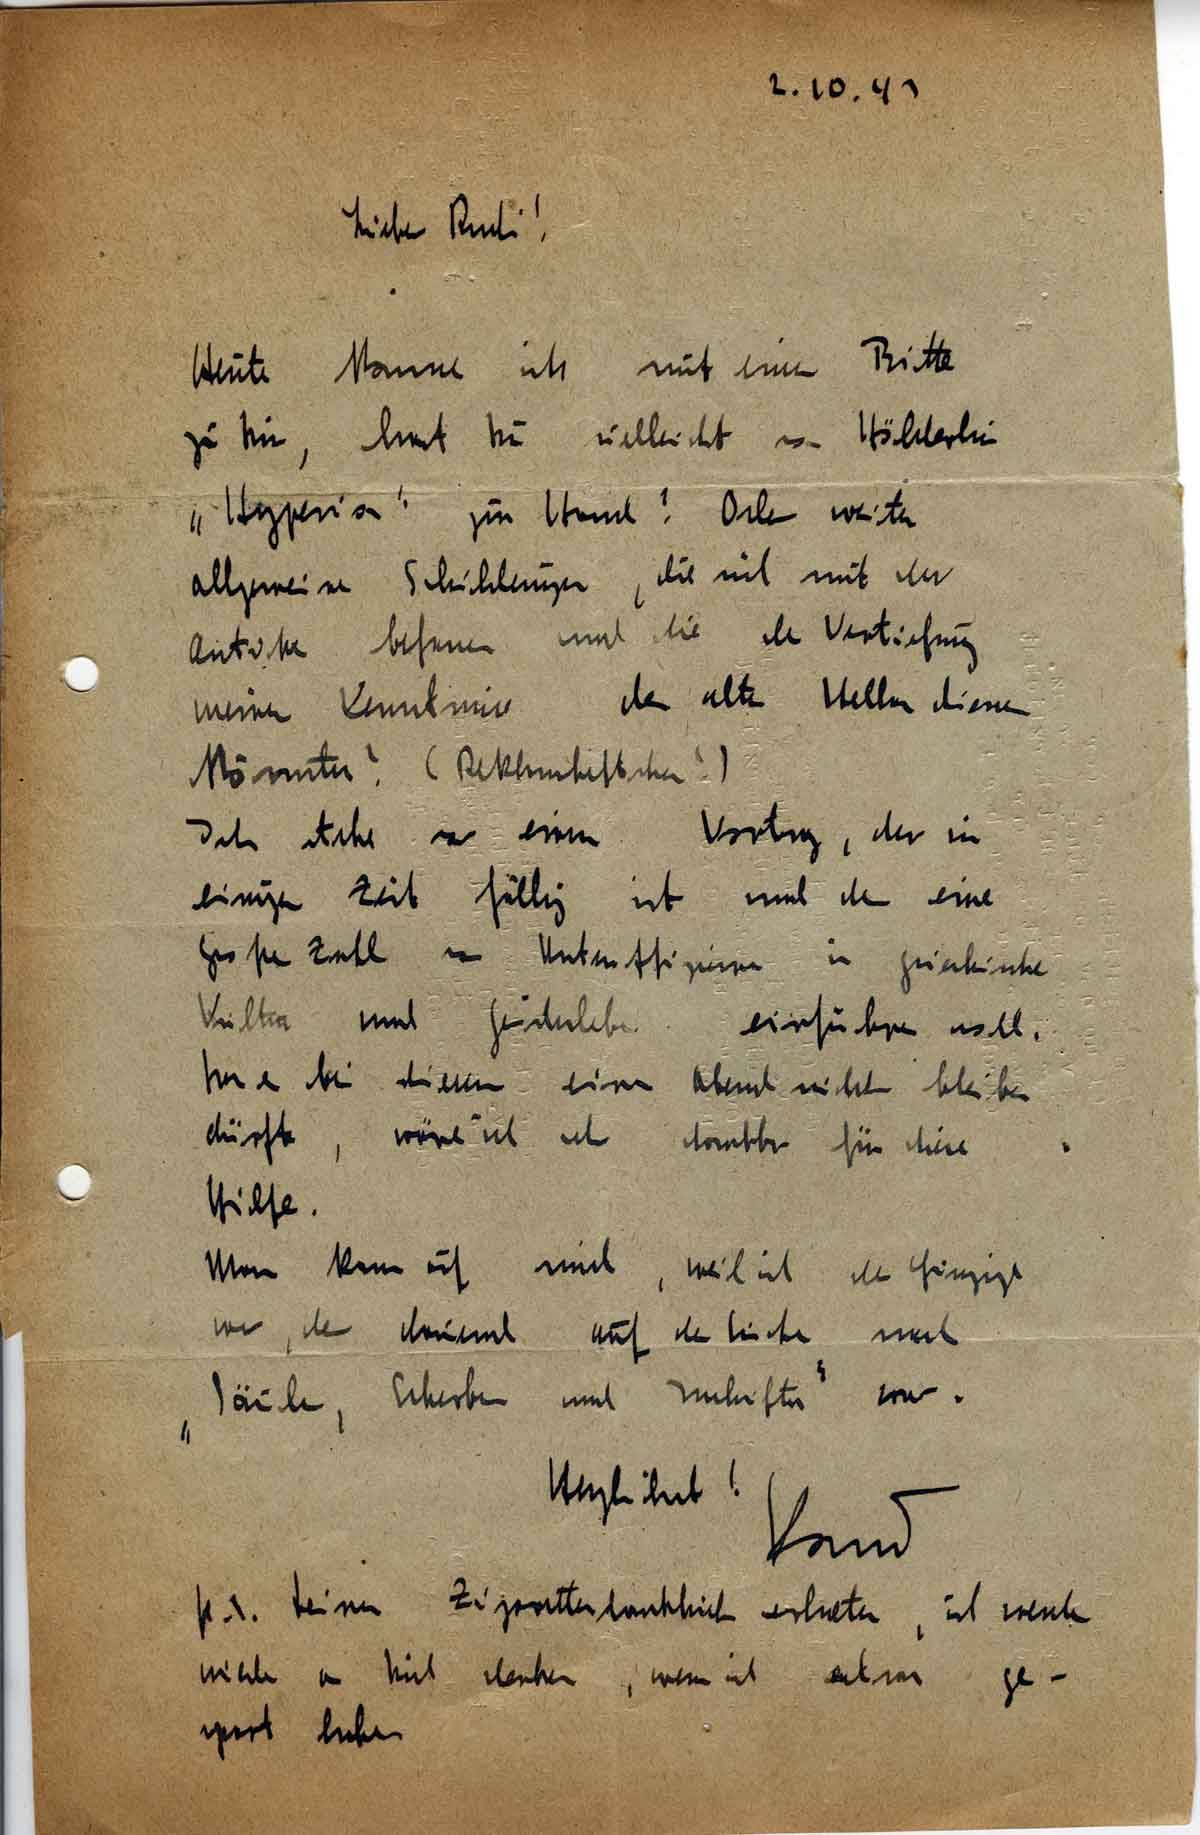 2.10.43
Lieber Rudi!
Heute komme ich mit einer Bitte
zu Dir, hast Du vielleicht von Hölderlin
„Hyperion" zur Hand? Oder weitere
allgemeine Schilderungen, die sich mit der
Antike befassen und die der Vertiefung
meiner Kenntnisse des alten Hellas dienen
könnten? (Reklamheftchen?)
Ich stehe vor einem Vortrag, der in
einiger Zeit fällig ist und der eine
große Zahl von Unteroffizieren in griechische
Kultur und Geistesleben einführen soll.
Da es bei diesem einen Abend nicht bleiben
dürfte, wäre ich dankbar für diese
Hilfe.
Man kam auf mich, weil ich der Einzige
war, der dauernd auf der Suche nach
„Säulen, Scherben und Inschriften" war.
Herzlichst!
P.S. Deinen Zigaretten erhalten, ich werde
wieder an Dich denken, wenn ich etwas ge-
spart habe